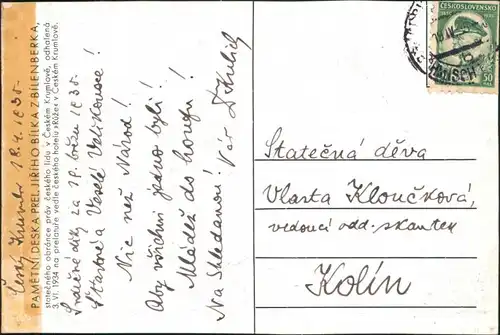 Český Krumlov 18.4.1935.
PAMĚTNÍ DESKA PREL. JIŘÍHO BÍLKA Z BÍLENBERKA,
statečného obránce práv českého lidu v Českém Krumlově, odhalená
3. VI. 1934 na prelatuře vedle českého hotelu »Růže« v Českém Krumlově.
Srdečné díky za 19. březen 1935.
Šťastné a Veselé Velikonoce!
Nic než Národ!
Aby všichni jedno byli!
Mládež do houfu!
Na Shledanou! Váš
ČESKOSLOVENSKO
50
Statečná děva
Vlasta Kloučková,
vedoucí odd. skautek
Kolín